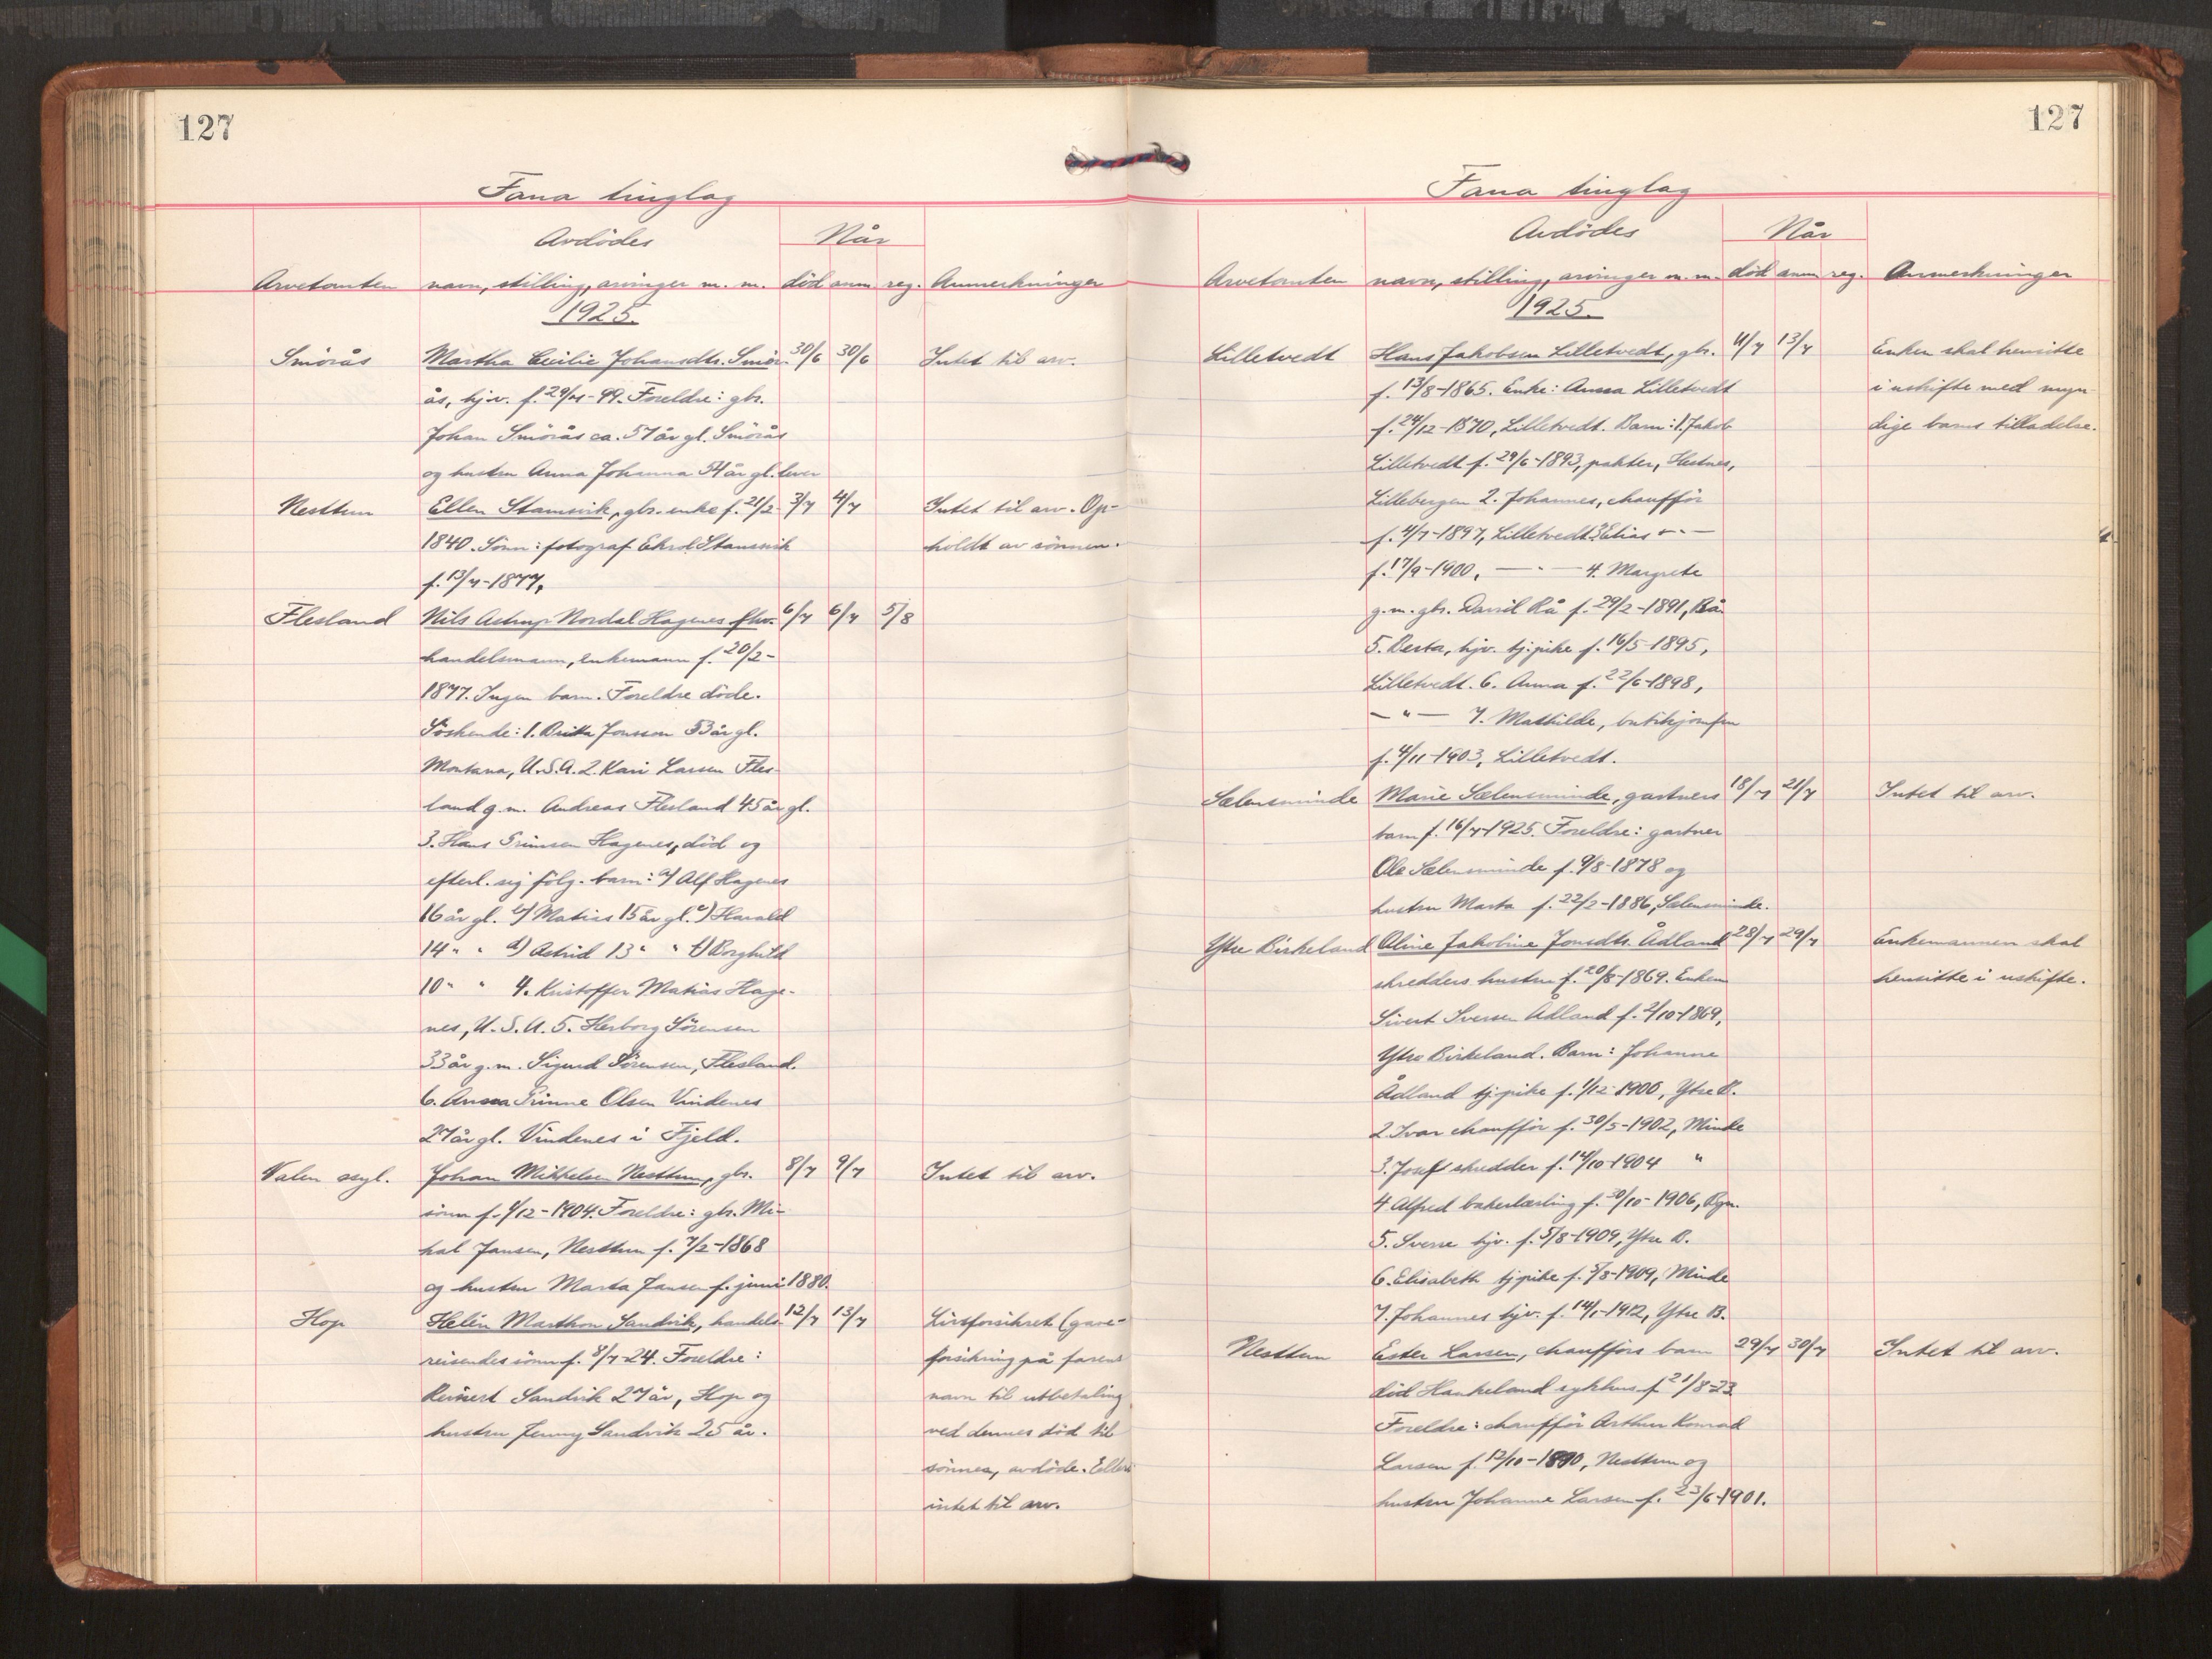 127
Fana tinglag
Avdödes
Når
Arvetomten navn, stilling, arvinger m. m. död anm. reg. Anmerkninger
1925.
Smörås Martha Cecilie Johansdtr. Smör- 30/6 30/6 Intet til arv.
ås, hjv. f. 29/4-99. Foreldre: gbr.
Johan Smörås ca. 57 år gl. Smörås
og hustru Anna Johanna 54 år gl. lever
Nesttun Ellen Stamsvik, gbr. enke f. 21/2- 3/7 4/7 Intet til arv. Op-
1840. Sönn: fotograf Stamsvik holdt av sönnen.
f. 13/7-1877.
Flesland Nils Astrup Nordal Hagenes 6/7 6/7 5/8
handelsmann, enkemann f. 20/2-
1877. Ingen barn. Foreldre döde.
Söskende: 1. Britta Jonsson 53 år gl.
Montana, U.S.A. 2. Kari Larsen Fles-
land g.m. Andreas Flesland 45 år gl.
3. Hans Hagenes, död og
efterl. sig fölg. barn: a) Alf Hagenes
16 år gl. b) Matias 15 år gl. c) Harald
14 " " d) Astrid 13 " " e) Borghild
10 " " 4. Kristoffer Matias Hage-
nes, U.S.A. 5. Herborg Sörensen
33 år g.m. Sigurd Sörensen, Flesland.
6. Anna Olsen Vindenes
27 år gl. Vindenes i Fjeld.
Valen asyl. Johan Mikkelsen Nesttun, gbr. 8/7 9/7 Intet til arv.
sönn f. 9/12-1904. Foreldre: gbr. Mi-
kal Jansen, Nesttun f. 7/2-1868
og hustru Marta Jansen f. juni 1880.
Hop Helén Marthon Sandvik, handels- 12/7 13/7 Livsforsikret (gave-
reisendes sönn f. 8/7-24. Foreldre: forsikring på farens
Reinert Sandvik 27 år, Hop og navn til utbetaling
hustru Jenny Sandvik 25 år. ved dennes död til
sönnen, avdöde. Ellers
intet til arv.
127
Fana tinglag
Avdödes
Når
Arvetomten navn, stilling, arvinger m. m. död anm. reg. Anmerkninger
1925.
Lilletvedt Hans Jakobsen Lilletvedt, gbr. 11/7 13/7 Enken skal hensitte
f. 13/8-1865. Enke: Anna Lilletvedt i uskifte med myn-
f. 24/12-1870, Lilletvedt. Barn: 1. Jakob dige barns tilladelse.
Lilletvedt f. 29/6-1893, pakter, Hestnes,
Lillebergen 2. Johannes, chaufför
f. 4/7-1897, Lilletvedt 3. Elias -"-
f. 17/9-1900, -"- 4. Margrete
g.m. gbr. Daniel Rå f. 29/2-1891, Rå.
5. Berta, hjv. tj.pike f. 16/5-1895,
Lilletvedt. 6. Anna f. 22/6-1898,
-"- 7. Mathilde, butikjomfru
f. 4/11-1903, Lilletvedt.
Sælensminde Marie Sælensminde, gartners 18/7 21/7 Intet til arv.
barn f. 16/7-1925. Foreldre: gartner
Ole Sælensminde f. 9/8-1878 og
hustru Marta f. 22/2-1886, Sælensminde.
Ytre Birkeland Oline Jakobine Jonsdtr. Ådland 28/7 29/7 Enkemannen skal
skredders hustru f. 20/8-1869. Enkem. hensitte i uskifte.
Sivert Iversen Ådland f. 2/10-1869,
Ytre Birkeland. Barn: Johanne
Ådland tj.pike f. 1/12-1900, Ytre B.
2. Ivar chaufför f. 30/5-1902, Minde
3. Josef skredder f. 14/10-1904 "
4. Alfred bakerlærling f. 30/10-1906, Bgn.
5. Sverre hjv. f. 5/8-1909, Ytre B.
6. Elisabeth tj.pike f. 5/8-1909, Minde
7. Johannes hjv. f. 14/1-1912, Ytre B.
Nesttun Ester Larsen, chaufförs barn 29/7 30/7 Intet til arv.
död Haukeland sykehus f. 21/8-23
Foreldre: chaufför Arthur Konrad
Larsen f. 12/10-1890, Nesttun og
hustru Johanne Larsen f. 23/6-1901.